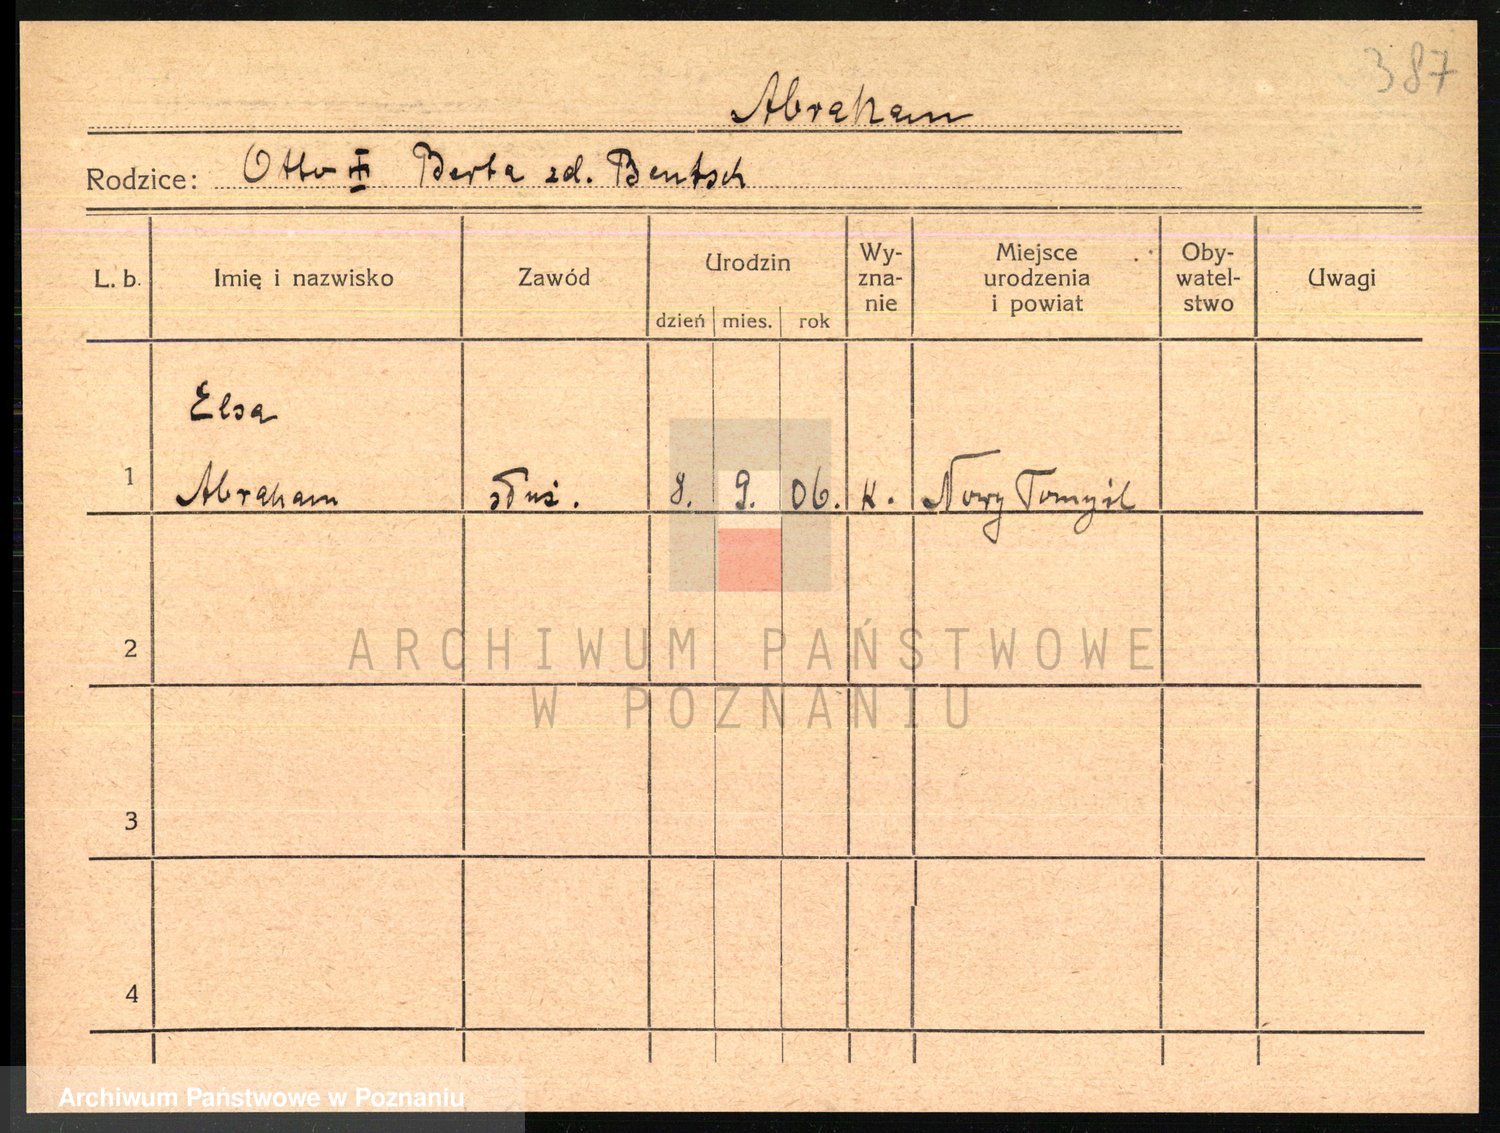 387
Abraham
Rodzice: Otto Berta zd. Bentsch
L. b. Imię i nazwisko Zawód Urodzin dzień mies. rok Wy-zna-nie Miejsce urodzenia i powiat Oby-watel-stwo Uwagi
Elsa
1 Abraham służ. 8. 9. 06. k. Nowy Tomyśl
2
3
4
ARCHIWUM PAŃSTWOWE
W POZNANIU
Archiwum Państwowe w Poznaniu